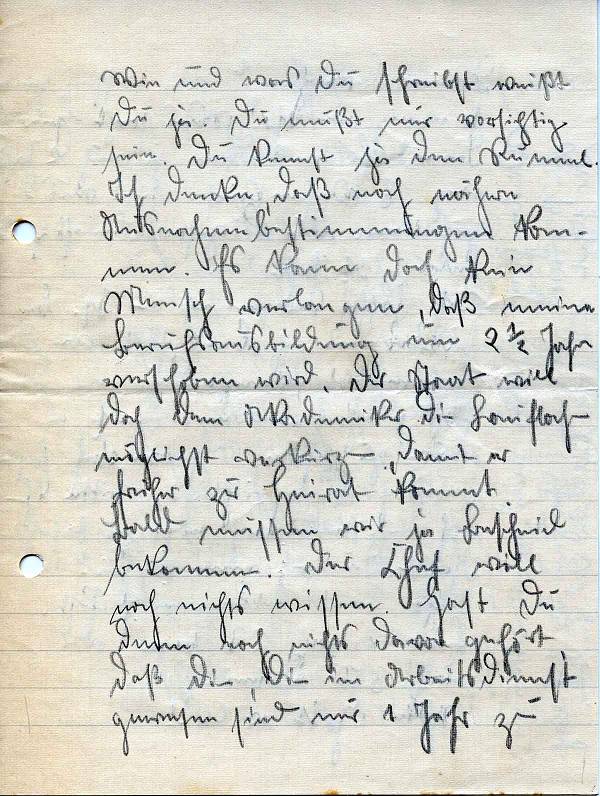 Wie und was Du schreibst weißt
Du ja. Du mußt nur vorsichtig
sein. Du kennst ja den Rummel.
Ich denke, daß noch nähere
Ausnahmebestimmungen kom-
men. Es kann doch kein
Mensch verlangen, daß meine
Berufsausbildung um 2 ½ Jahre
verschoben wird. Der Staat will
doch dem Akademiker die Laufbah
möglichst verkürz, damit er
früher zur Heirat kommt.
Bald müssen wir ja Bescheid
bekommen. Der Chef will
noch nichts wissen. Hast Du
denn noch nichts davon gehört,
daß die, die im Arbeitsdienst
gewesen sind nur 1 Jahr zu